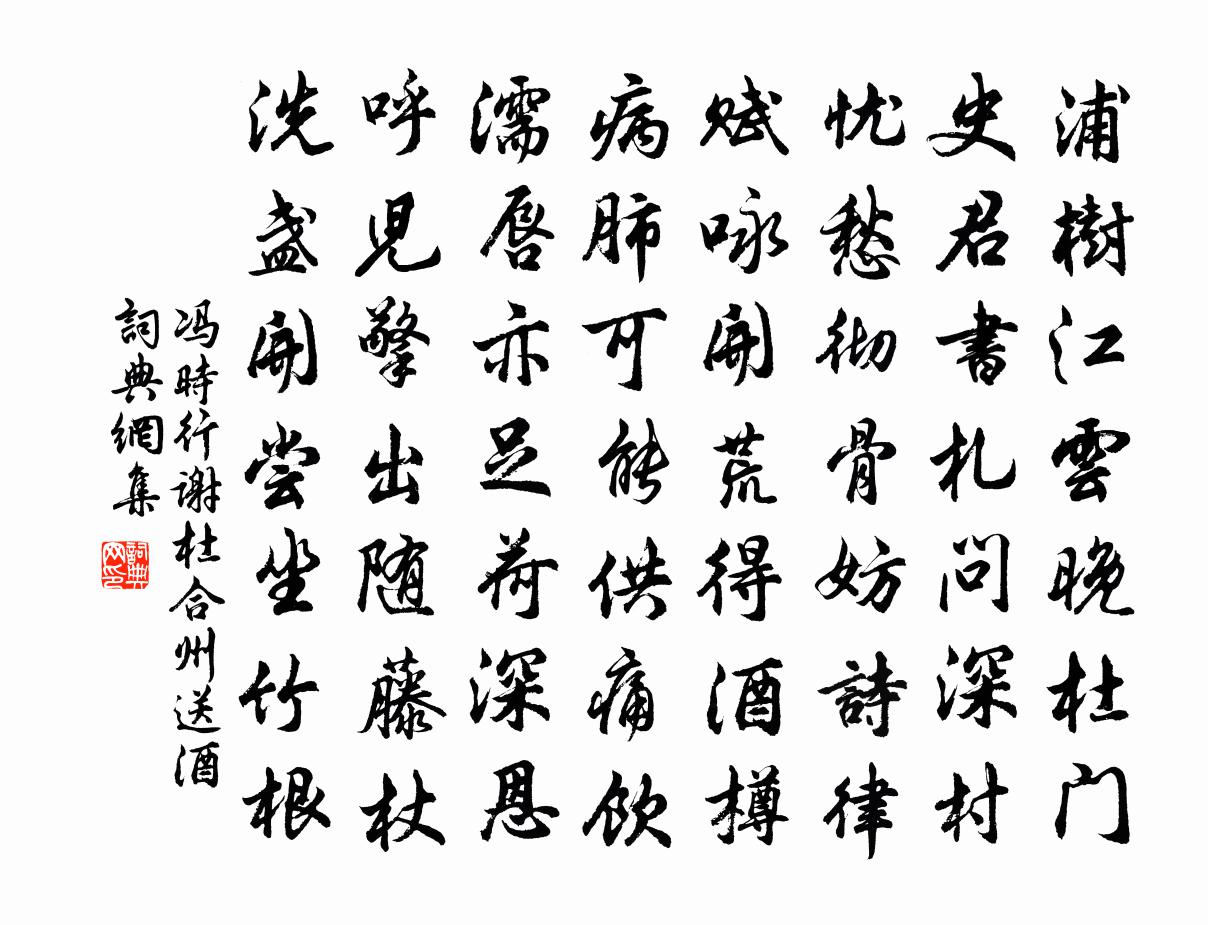 浦樹江雲晚杜门
史君書札问深村
忧愁彻骨妨詩律
赋咏開荒得酒樽
病肺可能供痛饮
濡唇亦足荷深恩
呼児擎出随藤杖
洗盏開尝坐竹根
冯時行谢杜合州送酒
詞典網集
詞典网印